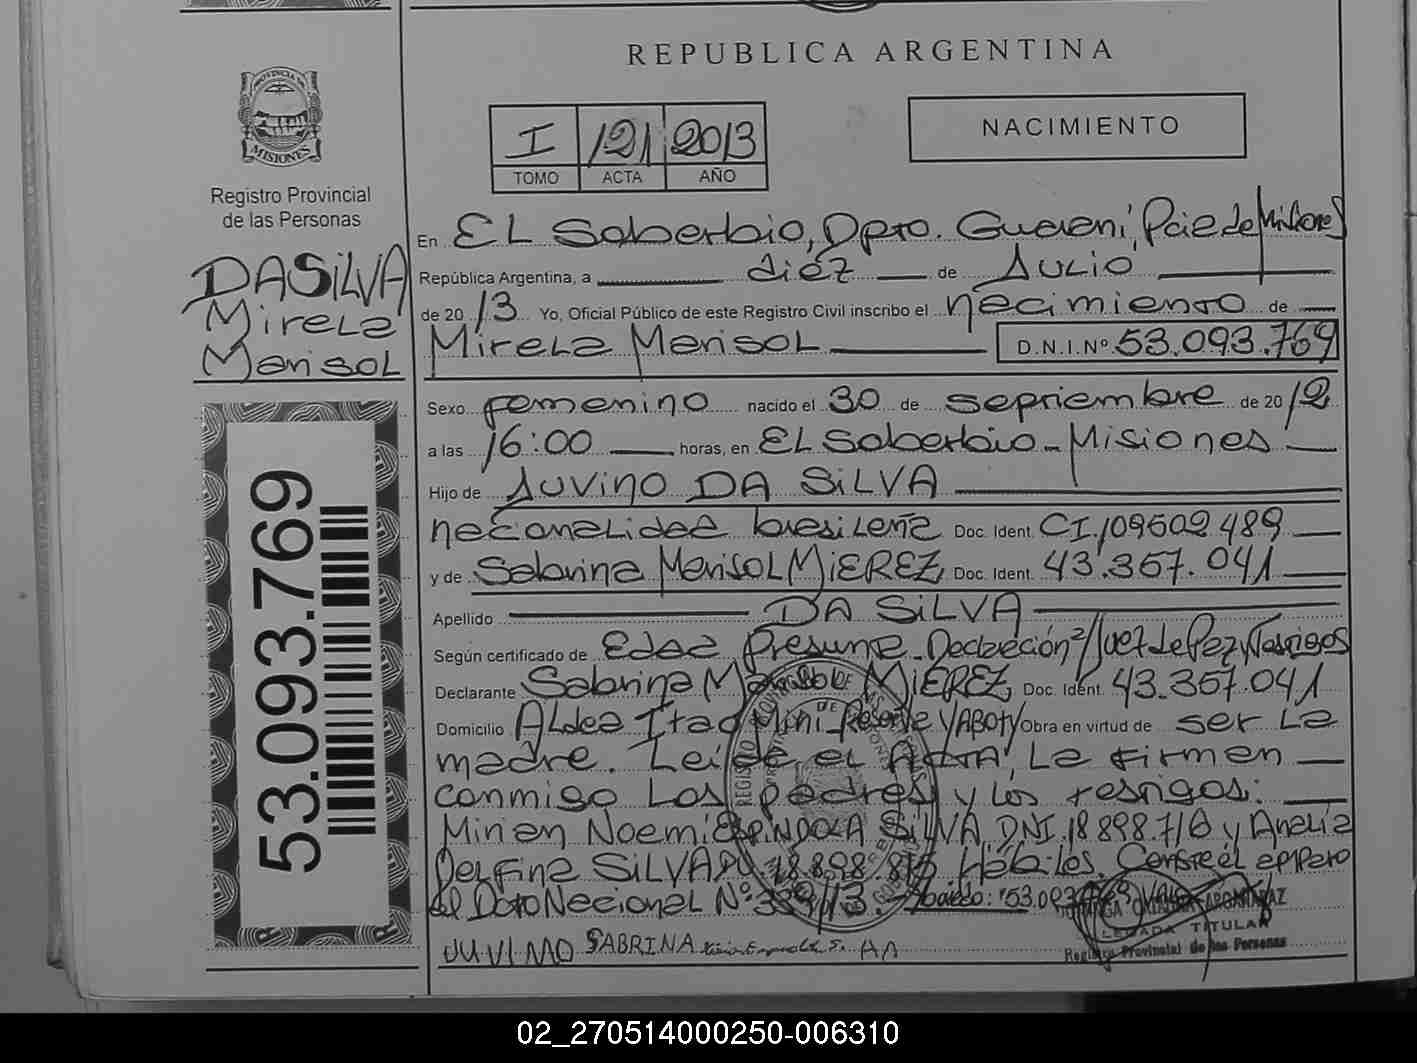 REPUBLICA ARGENTINA
PROVINCIA DE
MISIONES
Registro Provincial
de las Personas
DA SiLVA
Mirela
Marisol
53.093.769
I 121 2013
TOMO ACTA AÑO
NACIMIENTO
En EL Soberbio, Dpto. Guaraní, Pcia de Misiones
República Argentina, a diéz de JULIO
de 20 13 Yo, Oficial Público de este Registro Civil inscribo el nacimiento de
Mirela Marisol D.N.I.Nº 53.093.769
Sexo femenino nacido el 30 de septiembre de 20 12
a las 16:00 horas, en EL Soberbio - Misiones
Hijo de JUVINO DA SiLVA
nacionalidad brasileña Doc. Ident. CI. 109502489
y de Sabrina Marisol MiEREZ, Doc. Ident. 43.367.041
Apellido DA SiLVA
Según certificado de Edad Presunta - Declaración Juez de Paz y Testigos
Declarante Sabrina Marisol MiEREZ, Doc. Ident. 43.367.041
Domicilio Aldea Itao Mini Reserva YABOTY Obra en virtud de ser La
madre. Leída el ACTA, La firman
conmigo Los padres y los testigos:
Mirian Noemi ESPiNDOLA SiLVA, DNI. 18 898 716 y Analia
Delfina SiLVA 18.898.815 Hábiles. Consté el
Dcto Nacional Nº 339/13.
JUVIMO SABRINA AA
LEGADA TITULAR
Registro Provincial de las Personas
02_270514000250-006310